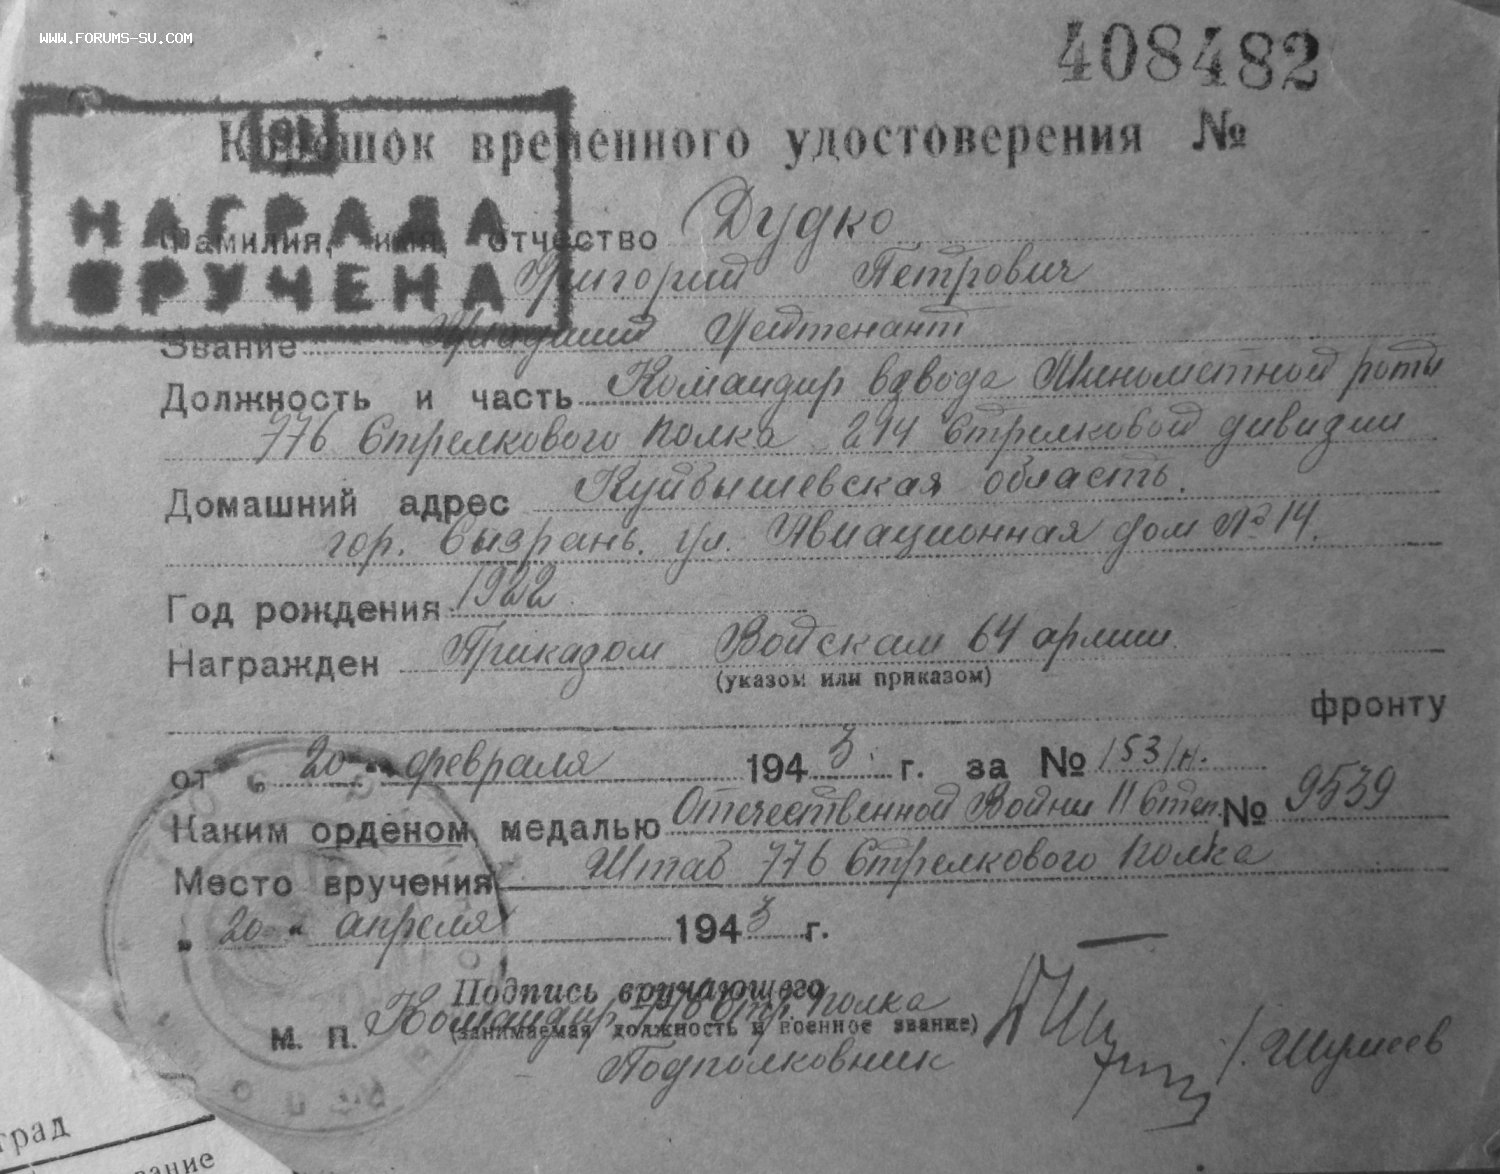 WWW.FORUMS-SU.COM
408482
Корешок временного удостоверения №
НАГРАДА
ВРУЧЕНА
Фамилия, имя, отчество Дудко
Григорий Петрович
Звание Младший Лейтенант
Должность и часть Командир взвода Минометной роты
776 Стрелкового полка 214 Стрелковой дивизии
Домашний адрес Куйбышевская область.
гор. Сызрань. ул. Авиационная дом № 14.
Год рождения 1922
Награжден Приказом Войскам 64 армии
(указом или приказом)
фронту
от 20 " февраля 1943 г. за № 153/н.
Каким орденом, медалью Отечественной Войны II Степ. № 9539
Место вручения Штаб 776 Стрелкового полка
„ 20 " апреля 1943 г.
Подпись вручающего
М. П. Командир 776 Стр. полка
(занимаемая должность и военное звание)
Подполковник /. Шумеев
град
вание